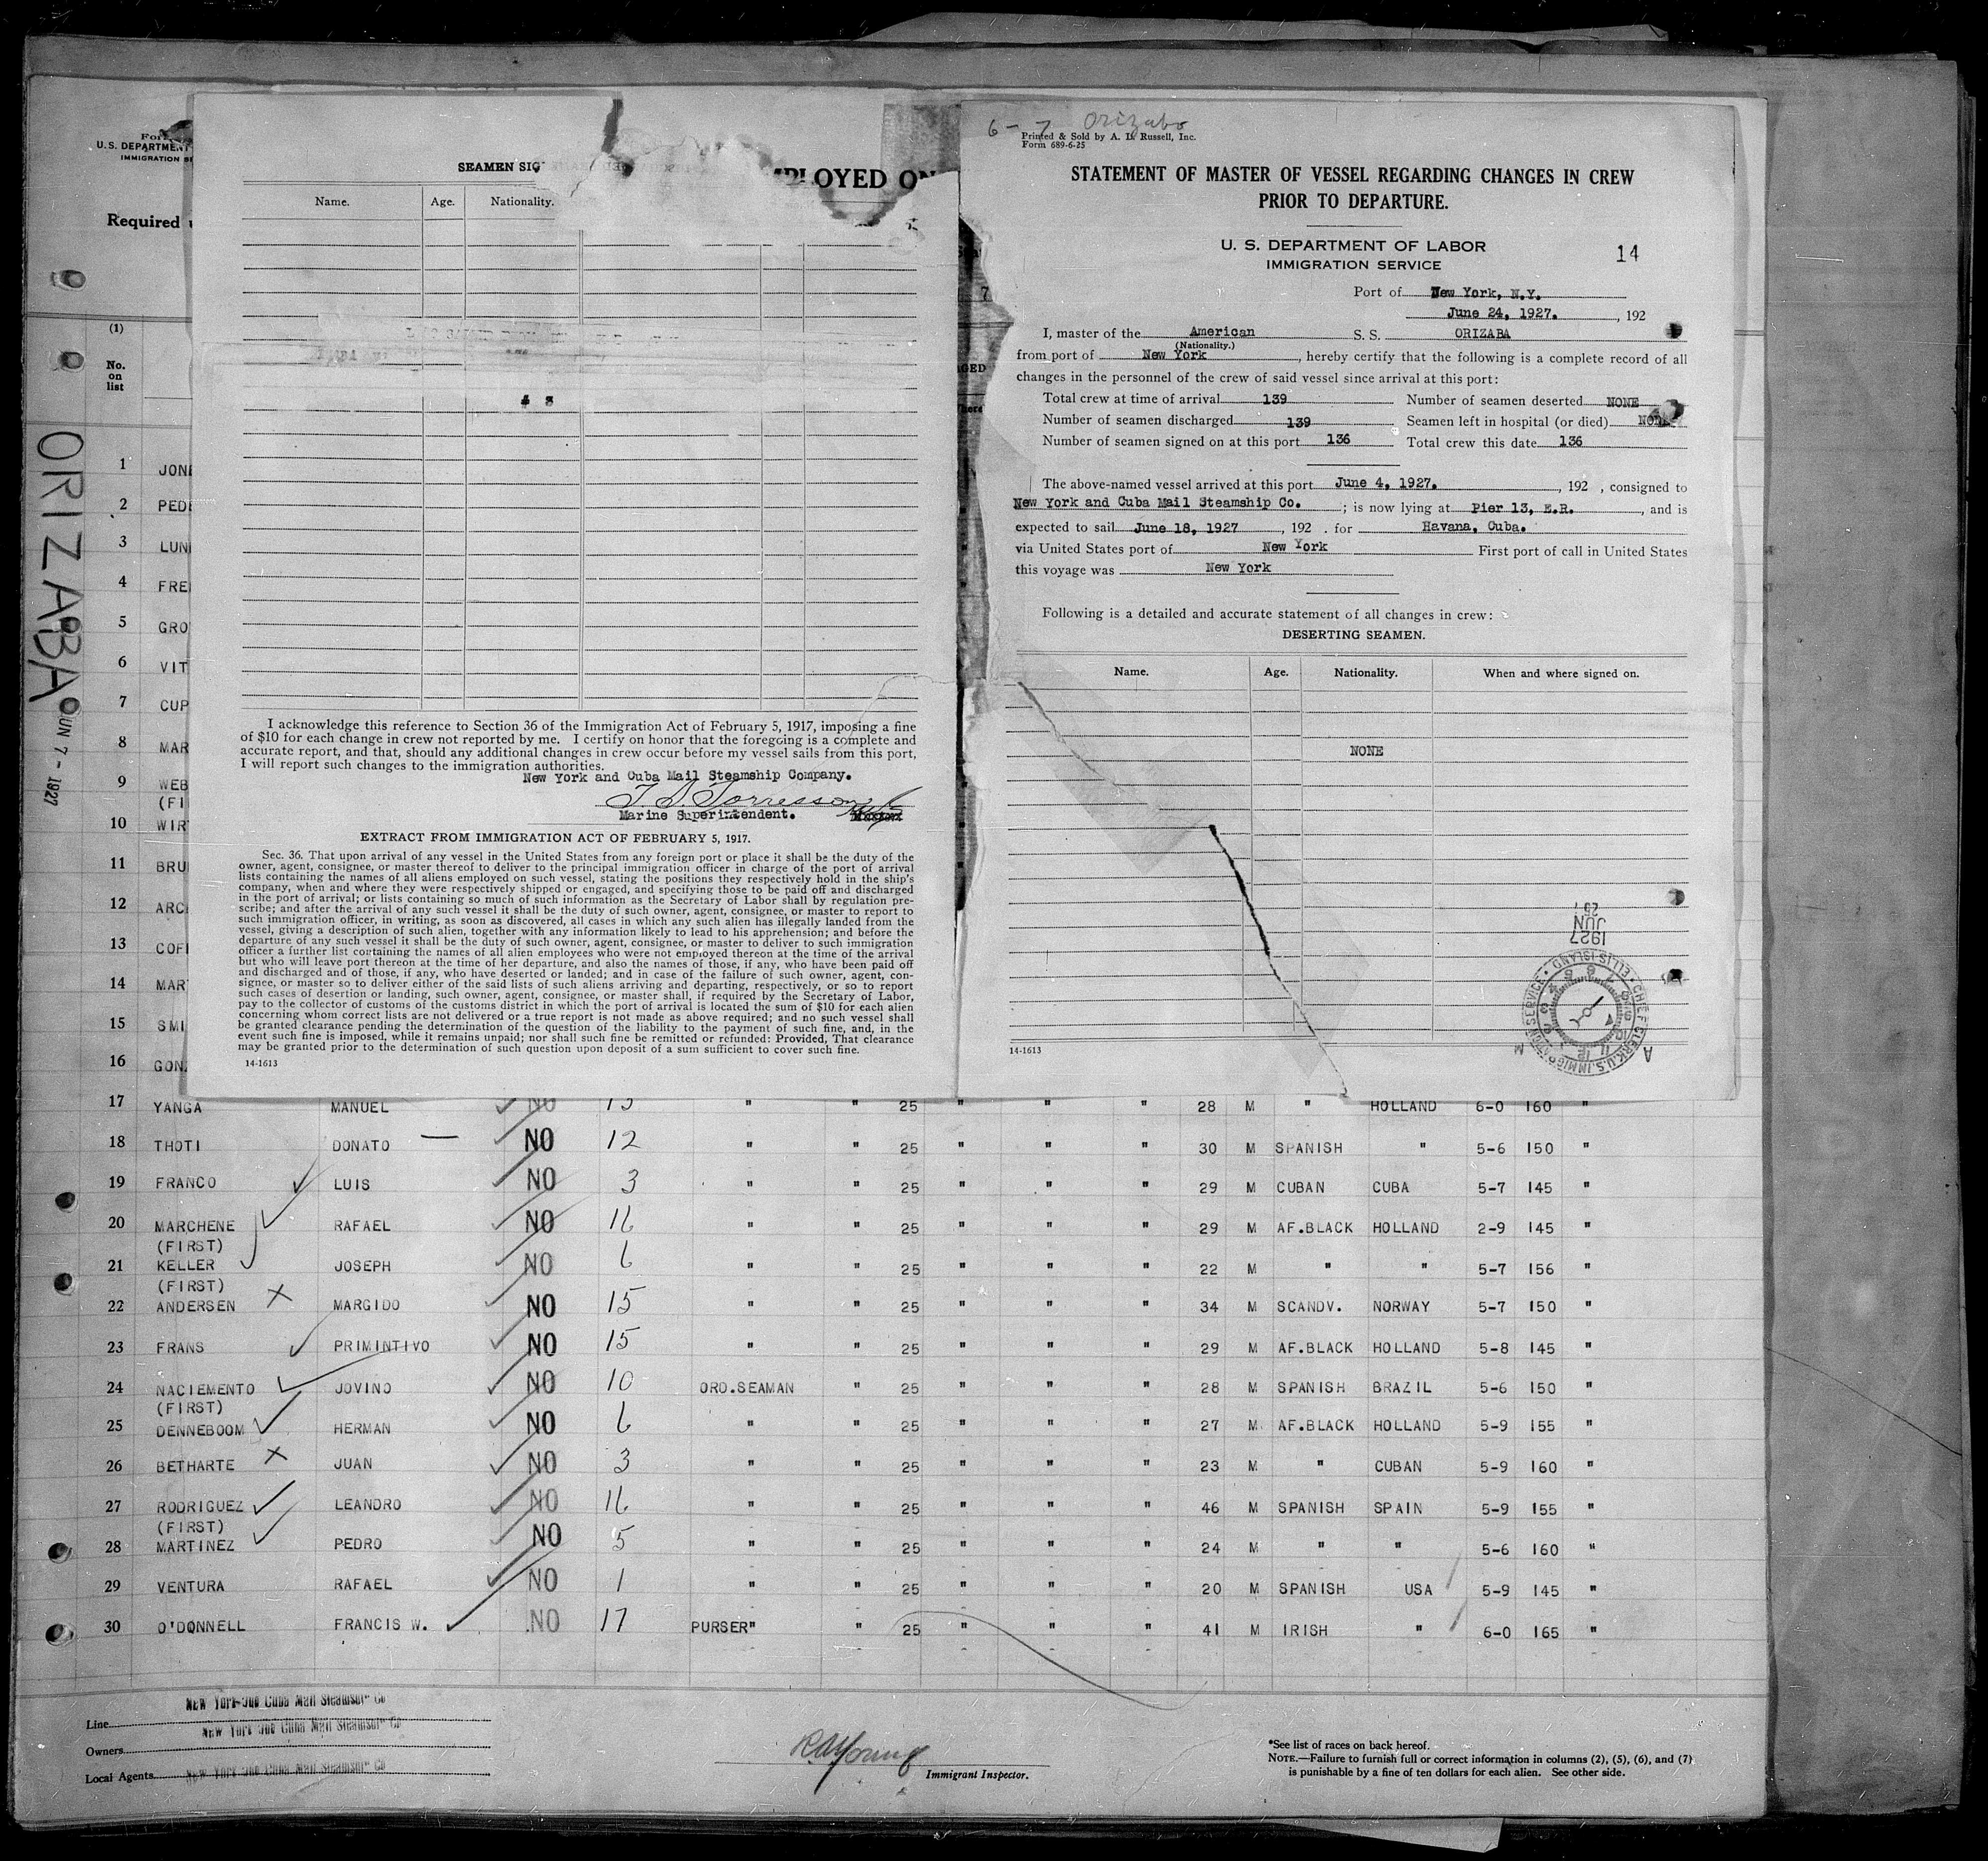 For
U.S. DEPARTMEN
IMMIGRATION SE
Required
(1)
No.
on
list
ORIZABA
JUN 7 - 1927
1 JON
2 PED
3 LUN
4 FRE
5 GRO
6 VIT
7 CUP
8 MAR
9 WEB
(FI
10 WIR
11 BRU
12 ARC
13 COF
14 MAR
15 SMI
16 GON
SEAMEN SIG
MPLOYED ON
Name. Age. Nationality.
4 3
I acknowledge this reference to Section 36 of the Immigration Act of February 5, 1917, imposing a fine
of $10 for each change in crew not reported by me. I certify on honor that the foregoing is a complete and
accurate report, and that, should any additional changes in crew occur before my vessel sails from this port,
I will report such changes to the immigration authorities.
New York and Cuba Mail Steamship Company.
T. D. Torresson
Marine Superintendent.
EXTRACT FROM IMMIGRATION ACT OF FEBRUARY 5, 1917.
Sec. 36. That upon arrival of any vessel in the United States from any foreign port or place it shall be the duty of the
owner, agent, consignee, or master thereof to deliver to the principal immigration officer in charge of the port of arrival
lists containing the names of all aliens employed on such vessel, stating the positions they respectively hold in the ship's
company, when and where they were respectively shipped or engaged, and specifying those to be paid off and discharged
in the port of arrival; or lists containing so much of such information as the Secretary of Labor shall by regulation pre-
scribe; and after the arrival of any such vessel it shall be the duty of such owner, agent, consignee, or master to report to
such immigration officer, in writing, as soon as discovered, all cases in which any such alien has illegally landed from the
vessel, giving a description of such alien, together with any information likely to lead to his apprehension; and before the
departure of any such vessel it shall be the duty of such owner, agent, consignee, or master to deliver to such immigration
officer a further list containing the names of all alien employees who were not employed thereon at the time of the arrival
but who will leave port thereon at the time of her departure, and also the names of those, if any, who have been paid off
and discharged and of those, if any, who have deserted or landed; and in case of the failure of such owner, agent, con-
signee, or master so to deliver either of the said lists of such aliens arriving and departing, respectively, or so to report
such cases of desertion or landing, such owner, agent, consignee, or master shall, if required by the Secretary of Labor,
pay to the collector of customs of the customs district in which the port of arrival is located the sum of $10 for each alien
concerning whom correct lists are not delivered or a true report is not made as above required; and no such vessel shall
be granted clearance pending the determination of the question of the liability to the payment of such fine, and, in the
event such fine is imposed, while it remains unpaid; nor shall such fine be remitted or refunded: Provided, That clearance
may be granted prior to the determination of such question upon deposit of a sum sufficient to cover such fine.
14-1613
6 - 7 Orizaba
Printed & Sold by A. L. Russell, Inc.
Form 689-6-25
STATEMENT OF MASTER OF VESSEL REGARDING CHANGES IN CREW
PRIOR TO DEPARTURE.
U. S. DEPARTMENT OF LABOR
IMMIGRATION SERVICE
14
Port of New York, N.Y.
June 24, 1927. , 192
I, master of the American S. S. ORIZABA
(Nationality.)
from port of New York , hereby certify that the following is a complete record of all
changes in the personnel of the crew of said vessel since arrival at this port:
Total crew at time of arrival 139 Number of seamen deserted NONE
Number of seamen discharged 139 Seamen left in hospital (or died) NONE
Number of seamen signed on at this port 136 Total crew this date 136
The above-named vessel arrived at this port June 4, 1927. , 192 , consigned to
New York and Cuba Mail Steamship Co. ; is now lying at Pier 13, E.R. , and is
expected to sail June 18, 1927 , 192 . for Havana, Cuba.
via United States port of New York First port of call in United States
this voyage was New York
Following is a detailed and accurate statement of all changes in crew:
DESERTING SEAMEN.
Name. Age. Nationality. When and where signed on.
NONE
1927
JUN
CHIEF CLERK, U.S. IMMIGRATION SERVICE • ELLIS ISLAND •
14-1613
17 YANGA MANUEL NO 15 " " 25 " " " 28 M " HOLLAND 6-0 160 "
18 THOTI DONATO — NO 12 " " 25 " " " 30 M SPANISH " 5-6 150 "
19 FRANCO LUIS NO 3 " " 25 " " " 29 M CUBAN CUBA 5-7 145 "
20 MARCHENE RAFAEL NO 16 " " 25 " " " 29 M AF.BLACK HOLLAND 2-9 145 "
(FIRST)
21 KELLER JOSEPH NO 6 " " 25 " " " 22 M " " 5-7 156 "
(FIRST)
22 ANDERSEN X MARGIDO NO 15 " " 25 " " " 34 M SCANDV. NORWAY 5-7 150 "
23 FRANS PRIMINTIVO NO 15 " " 25 " " " 29 M AF.BLACK HOLLAND 5-8 145 "
24 NACIEMENTO JOVINO NO 10 ORD.SEAMAN " 25 " " " 28 M SPANISH BRAZIL 5-6 150 "
(FIRST)
25 DENNEBOOM HERMAN NO 6 " " 25 " " " 27 M AF.BLACK HOLLAND 5-9 155 "
26 BETHARTE X JUAN NO 3 " " 25 " " " 23 M " CUBAN 5-9 160 "
27 RODRIGUEZ LEANDRO NO 16 " " 25 " " " 46 M SPANISH SPAIN 5-9 155 "
(FIRST)
28 MARTINEZ PEDRO NO 5 " " 25 " " " 24 M " " 5-6 160 "
29 VENTURA RAFAEL NO 1 " " 25 " " " 20 M SPANISH USA 5-9 145 "
30 O'DONNELL FRANCIS W. NO 17 PURSER" " 25 " " " 41 M IRISH " 6-0 165 "
Line New York and Cuba Mail Steamship Co
Owners New York and Cuba Mail Steamship Co
Local Agents New York and Cuba Mail Steamship Co
RAYoung
Immigrant Inspector.
*See list of races on back hereof.
NOTE.—Failure to furnish full or correct information in columns (2), (5), (6), and (7)
is punishable by a fine of ten dollars for each alien. See other side.